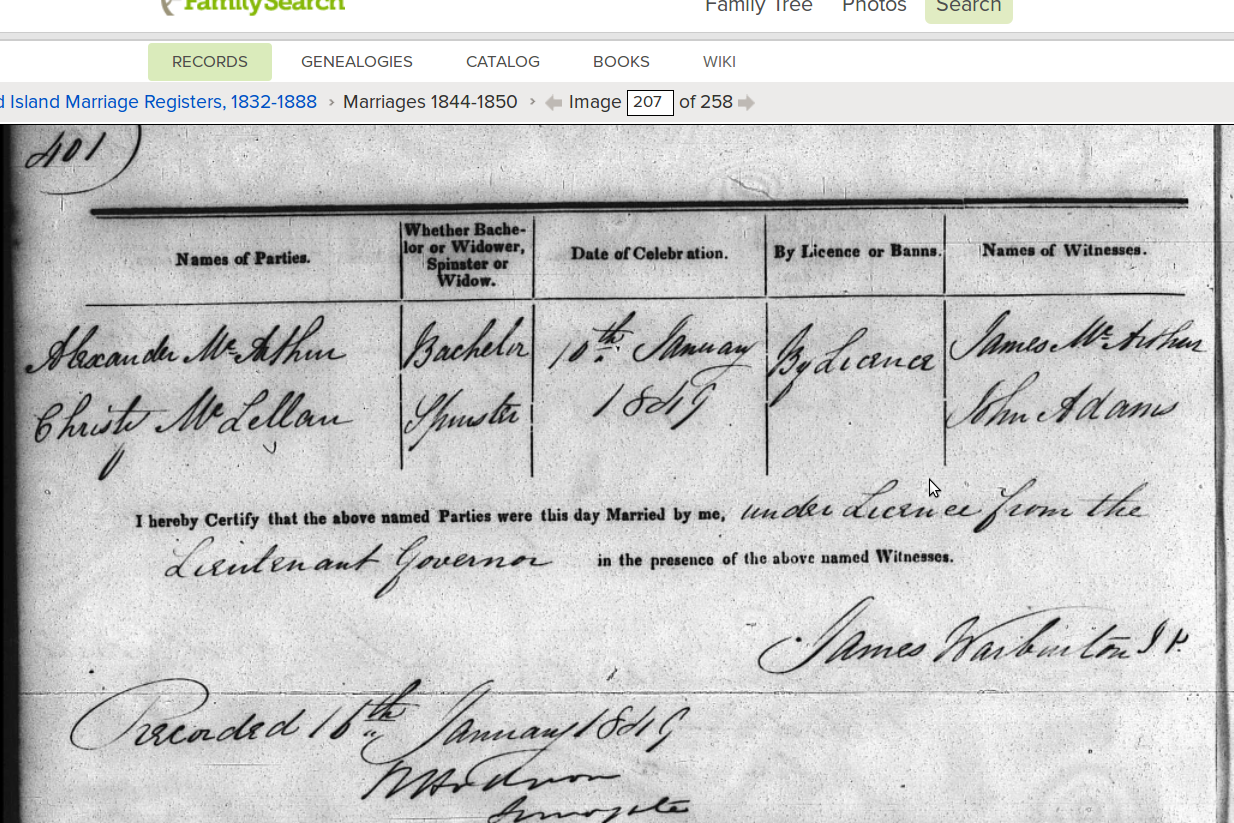 FamilySearch
Family Tree Photos Search
RECORDS GENEALOGIES CATALOG BOOKS WIKI
d Island Marriage Registers, 1832-1888 › Marriages 1844-1850 › Image 207 of 258
401)
Names of Parties. Whether Bache- lor or Widower, Spinster or Widow. Date of Celebration. By Licence or Banns. Names of Witnesses.
Alexander Mc Arthur Bachelor 10th January By Licence James Mc Arthur
Christy Mc Lellan Spinster 1849 John Adams
I hereby Certify that the above named Parties were this day Married by me, under Licence from the
Lieutenant Governor in the presence of the above named Witnesses.
James Warburton J P.
Recorded 16th January 1849
Surrogate